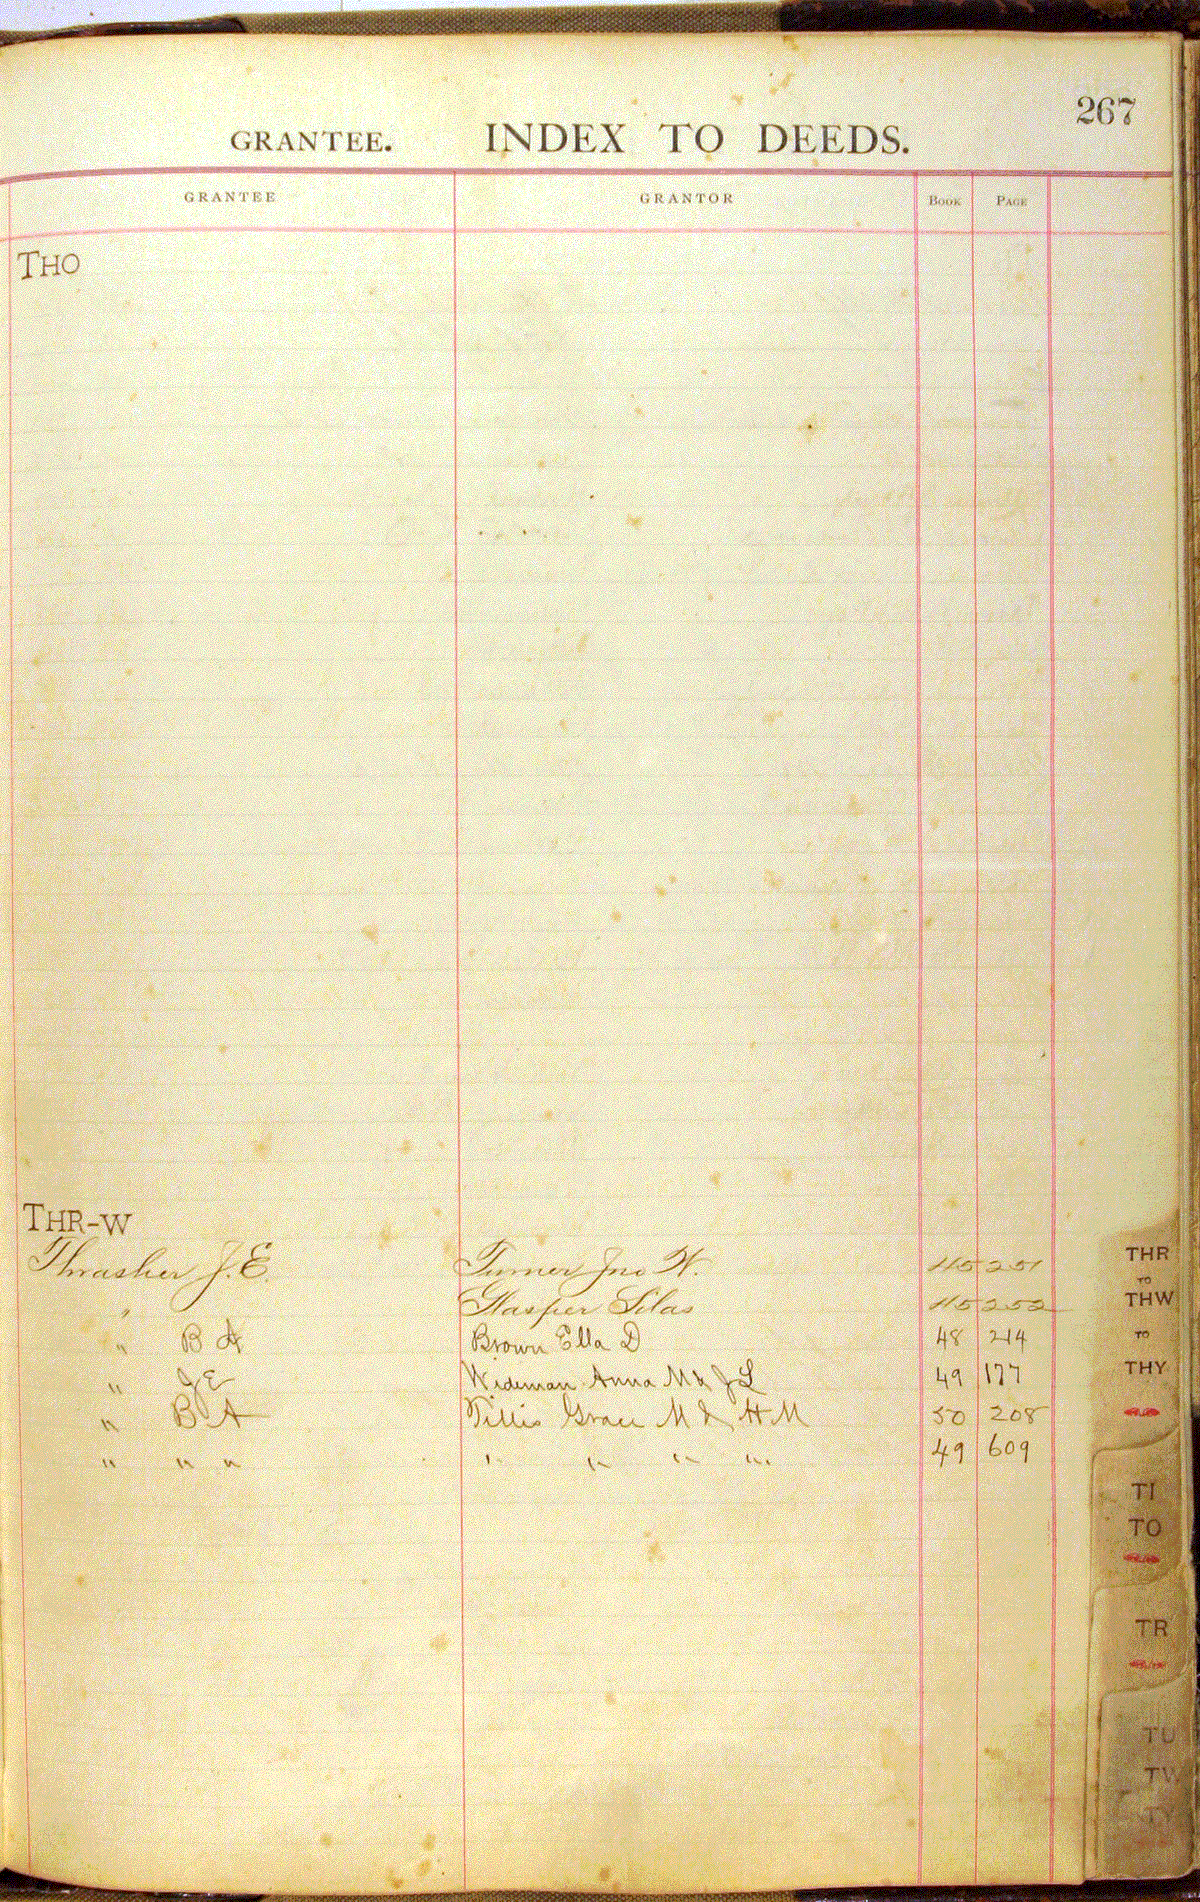 267
GRANTEE. INDEX TO DEEDS.
GRANTEE GRANTOR BOOK PAGE
THO
THR-W
Thrasher J. E. Turner Jno W. 45 251
" Glasper Silas 45 252
" B A Brown Ella D 48 214
" J E Wideman Anna M & J L 49 177
" B A Willis Grace M & H M 50 208
" " " " " " " 49 609
THR
TO
THW
TO
THY
TI
TO
TR
TU
TW
TY